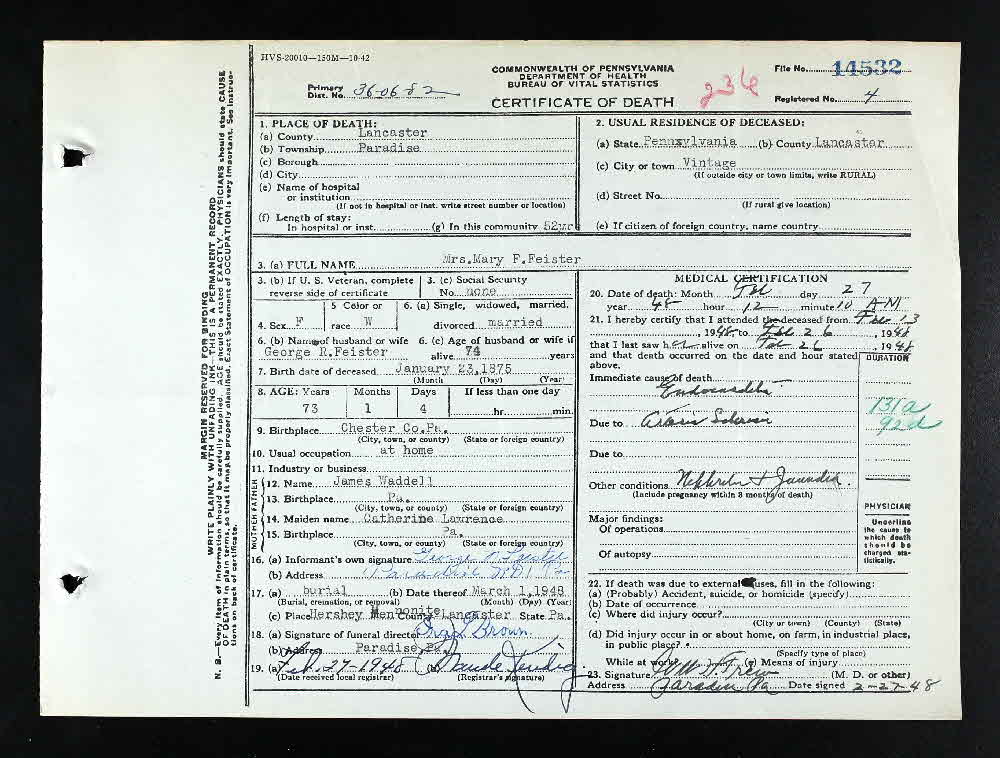 HVS-20010—150M—10-42
COMMONWEALTH OF PENNSYLVANIA
DEPARTMENT OF HEALTH
BUREAU OF VITAL STATISTICS
CERTIFICATE OF DEATH
File No. 14532
Primary Dist. No. 36-06-82
236
Registered No. 4
1. PLACE OF DEATH:
(a) County Lancaster
(b) Township Paradise
(c) Borough
(d) City
(e) Name of hospital
or institution
(If not in hospital or inst. write street number or location)
(f) Length of stay:
In hospital or inst. (g) In this community 52yr
2. USUAL RESIDENCE OF DECEASED:
(a) State Pennsylvania (b) County Lancaster
(c) City or town Vintage
(If outside city or town limits, write RURAL)
(d) Street No.
(If rural give location)
(e) If citizen of foreign country, name country
3. (a) FULL NAME Mrs.Mary F.Feister
3. (b) If U. S. Veteran, complete
reverse side of certificate
3. (c) Social Security
No. none
4. Sex F
5 Color or
race W
6. (a) Single, widowed, married,
divorced married
6. (b) Name of husband or wife
George R.Feister
6. (c) Age of husband or wife if
alive 74 years
7. Birth date of deceased January 23,1875
(Month) (Day) (Year)
8. AGE: Years Months Days If less than one day
73 1 4 hr. min.
9. Birthplace Chester Co.Pa.
(City, town, or county) (State or foreign country)
10. Usual occupation at home
11. Industry or business
FATHER
12. Name James Waddell
13. Birthplace Pa.
(City, town, or county) (State or foreign country)
MOTHER
14. Maiden name Catherine Lawrence
15. Birthplace Pa.
(City, town, or county) (State or foreign country)
16. (a) Informant's own signature George R Feister
(b) Address Paradise RD1 Pa
17. (a) burial (b) Date thereof March 1,1948
(Burial, cremation, or removal) (Month) (Day) (Year)
(c) Place Hershey Mennonite County Lancaster State Pa.
18. (a) Signature of funeral director Brown.
(b) Address Paradise,Pa.
19. (a) Feb. 27-1948 (b) Maude
(Date received local registrar) (Registrar's signature)
MEDICAL CERTIFICATION
20. Date of death: Month Feb day 27
year 48 hour 12 minute 10 AM
21. I hereby certify that I attended the deceased from Feb 13
, 1948 to Feb 26, 1948
that I last saw her alive on Feb 26, 1948
and that death occurred on the date and hour stated
above.
DURATION
Immediate cause of death
Endocarditis
131a
92d
Due to
Due to
Other conditions Nephritis + Jaundice.
(Include pregnancy within 3 months of death)
Major findings:
Of operations
Of autopsy
PHYSICIAN
Underline
the cause to
which death
should be
charged sta-
tistically.
22. If death was due to external causes, fill in the following:
(a) (Probably) Accident, suicide, or homicide (specify)
(b) Date of occurrence
(c) Where did injury occur?
(City or town) (County) (State)
(d) Did injury occur in or about home, on farm, in industrial place,
in public place?
(Specify type of place)
While at work? (e) Means of injury
23. Signature (M. D. or other)
Address Paradise Pa Date signed 2-27-48
MARGIN RESERVED FOR BINDING
WRITE PLAINLY WITH UNFADING INK—THIS IS A PERMANENT RECORD
N. B.—Every item of information should be carefully supplied. AGE should be stated EXACTLY. PHYSICIANS should state CAUSE
OF DEATH in plain terms, so that it may be properly classified. Exact Statement of OCCUPATION is very important. See instruc-
tions on back of certificate.